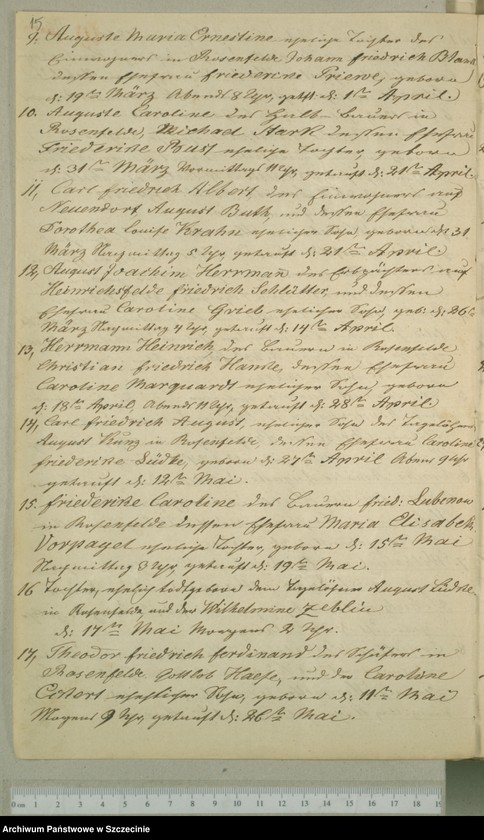 15
9, Auguste Maria Ernestine eheliche Tochter des
Einwohners in Rosenfelde Johann Friedrich
dessen Ehefrau Friederike Priewe, geboren
d: 19ten März Abends 8 Uhr, getft: d: 1sten April.
10. Auguste Caroline des Halb-Bauers in
Rosenfelde, Michael Stark dessen Ehefrau
Friederike Pust eheliche Tochter, geboren
d: 31sten März Vormittags 11 Uhr, getauft d: 21sten April.
11, Carl Friedrich Albert des Einwohners auf
Neuendorf August Buth, und dessen Ehefrau
Dorothea Louise Krahn ehelicher Sohn, geboren d: 31
März Nachmittag 5 Uhr, getauft d: 21sten April.
12, August Joachim Herrmann des Erbpächters auf
Heinrichsfelde Friedrich Schlütter, und dessen
Ehefrau Caroline Grieb ehelicher Sohn, geb: d: 26
März Nachmittag 4 Uhr, getauft d: 14ten April.
13, Herrmann Heinrich, des Bauern in Rosenfelde
Christian Friedrich dessen Ehefrau
Caroline Marquardt ehelicher Sohn, geboren
d: 18ten April, Abends 11 Uhr, getauft d: 28sten April
14, Carl Friedrich August, ehelicher Sohn des Tagelöhners
August Kunz in Rosenfelde, dessen Ehefrau Caroline
Friederike Lüdke, geboren d: 27sten April Abens 9 Uhr
getauft d: 12ten Mai.
15. Friederike Caroline des Bauern Fried: Lubenow
in Rosenfelde dessen Ehefrau Maria Elisabeth
Vorpagel eheliche Tochter, geboren d: 15ten Mai
Nachmittag 3 Uhr, getauft d: 19ten Mai.
16 Tochter, ehelich todtgeboren dem Tagelöhner August Lüdke
in Rosenfelde und der Wilhelmine Zeblin
d: 17ten Mai Morgens 2 Uhr.
17, Theodor Friedrich Ferdinand des Schäfers in
Rosenfelde Gottlob Haese, und der Caroline
ehelicher Sohn, geboren d: 11ten Mai
Morgens 9 Uhr, getauft d: 26ten Mai.
0 cm 1 2 3 4 5 6 7 8 9 10 11 12 13 14 15 16 17 18 19
Archiwum Państwowe w Szczecinie